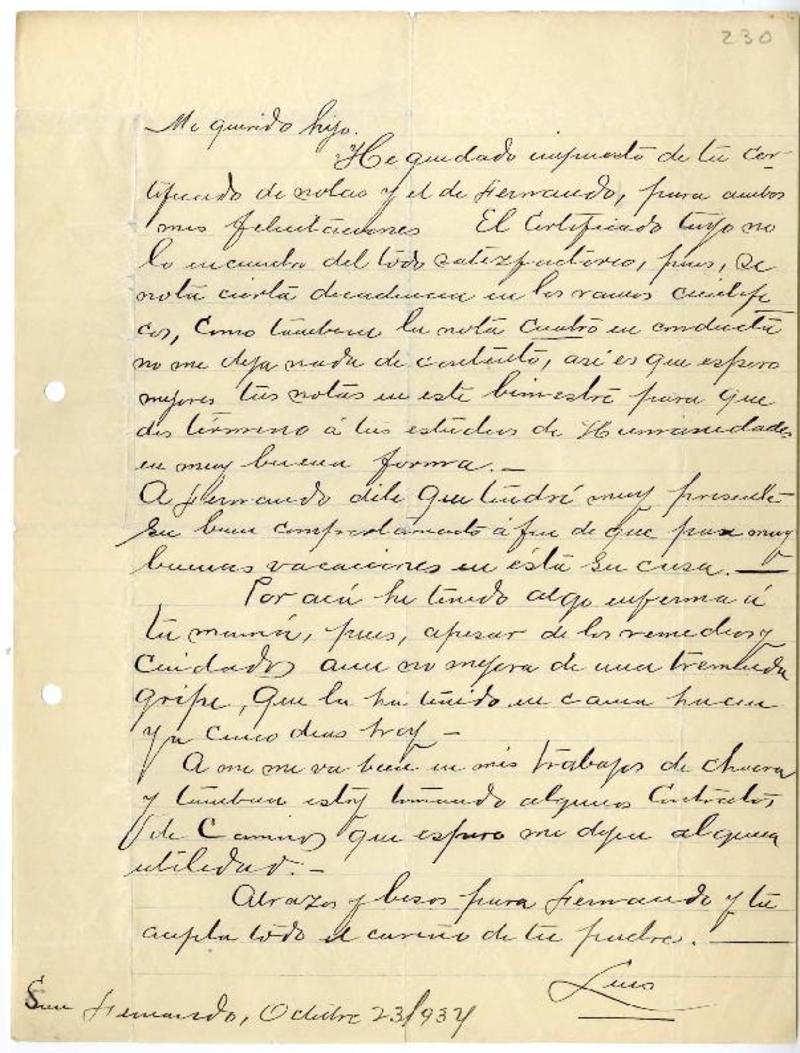 230
Mi querido hijo.
He quedado impuesto de tu cer-
tificado de notas y el de Fernando, para ambos
mis felicitaciones El Certificado tuyo no
lo encuentro del todo satisfactorio, pues, se
nota cierta decadencia en los ramos científi
cos, como tambien la nota cuatro en conducta
no me deja nada de contento, asi es que espero
mejores tus notas en este bimestre para que
des término á tus estudios de Humanidades
en muy buena forma.-
A Fernando dile que tendré muy presente
su buen comportamiento á fin de que pase muy
buenas vacaciones en ésta su casa.-
Por acá he tenido algo enferma á
tu mamá, pues, apesar de los remedios y
cuidados aun no mejora de una tremenda
gripe, que la ha tenido en cama hacen
ya cinco dias hoy-
A mi me va bien en mis trabajos de chacra
y tambien estoy tomando algunos Contratos
de Caminos que espero me dejen alguna
utilidad.-
Abrazos y besos para Fernando y tu
acepta todo el cariño de tu padre.
Luis
San Fernando, Octubre 23/934